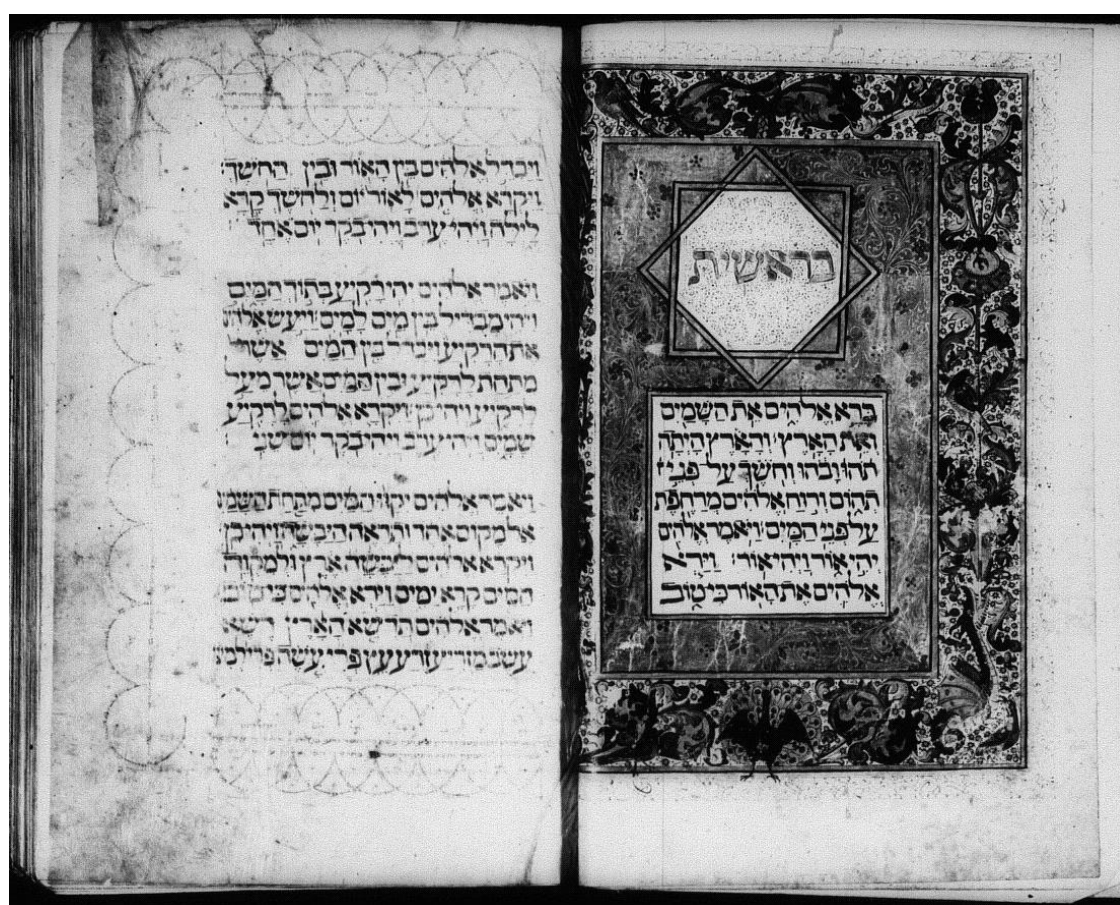 בראשית
בָּרָא אֱלֹהִים אֵת הַשָּׁמַיִם
וְאֵת הָאָרֶץ׃ וְהָאָרֶץ הָיְתָה
תֹהוּ וָבֹהוּ וְחֹשֶׁךְ עַל־פְּנֵי
תְהוֹם וְרוּחַ אֱלֹהִים מְרַחֶפֶת
עַל־פְּנֵי הַמָּיִם׃ וַיֹּאמֶר אֱלֹהִים
יְהִי אוֹר וַיְהִי אוֹר׃ וַיַּרְא
אֱלֹהִים אֶת הָאוֹר כִּי טוֹב
ויבדל אלהים בין האור ובין החשך׃
ויקרא אלהים לאור יום ולחשך קרא
לילה ויהי ערב ויהי בקר יום אחד
ויאמר אלהים יהי רקיע בתוך המים
ויהי מבדיל בין מים למים׃ ויעש אלהים
את הרקיע ויבדל בין המים אשר
מתחת לרקיע ובין המים אשר מעל
לרקיע ויהי כן׃ ויקרא אלהים לרקיע
שמים ויהי ערב ויהי בקר יום שני
ויאמר אלהים יקוו המים מתחת השמים
אל מקום אחד ותראה היבשה ויהי כן
ויקרא אלהים ליבשה ארץ ולמקוה
המים קרא ימים וירא אלהים כי טוב
ויאמר אלהים תדשא הארץ דשא
עשב מזריע זרע עץ פרי עשה פרי למינו